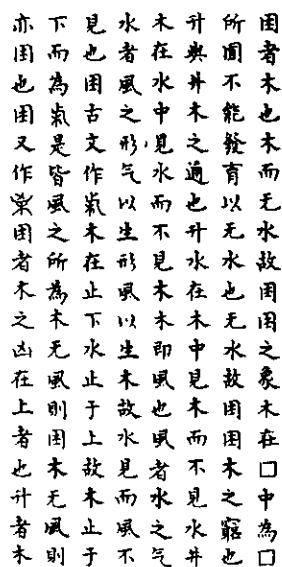 困者木也木而无水故困困之象木在囗中為囗
所圍不能發育以无水也无水故困困木之窮也
升與井木之通也升水在木中見木而不見水井
木在水中見水而不見木木即風也風者水之气
水者風之形气以生形風以生木故水見而風不
見也困古文作木在止下水止于上故木止于
下而為氣是皆風之所為木无風則困木无風則
亦困也困又作困者木之凶在上者也升者木